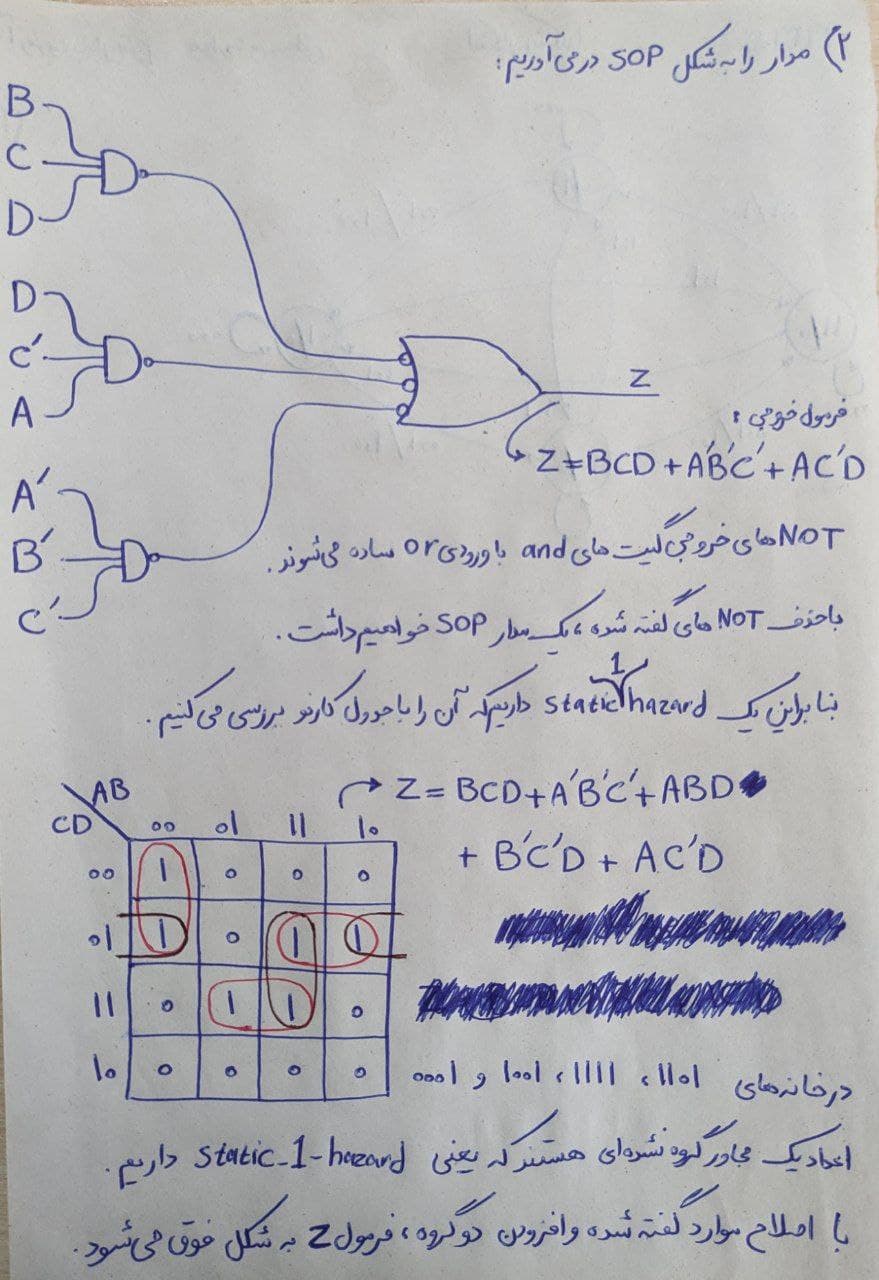 ۲) مدار را به شکل SOP در می‌آوریم:
B
C
D
D
C′
A
A′
B′
C′
Z
فرمول خروجی:
Z = BCD + A′B′C′ + AC′D
NOT های خروجی گیت های and با ورودی or ساده می‌شوند.
با حذف NOT های گفته شده، یک مدار SOP خواهیم داشت.
بنابراین یک static 1 hazard داریم که آن را با جدول کارنو بررسی می‌کنیم.
Z = BCD + A′B′C′ + ABD
+ B′C′D + AC′D
AB
CD 00 01 11 10
00 1 0 0 0
01 1 0 1 1
11 0 1 1 0
10 0 0 0 0
در خانه‌های 1101، 1111، 1001 و 0001
اعداد یک مجاور گروه نشده‌ای هستند که یعنی static-1-hazard داریم.
با اصلاح موارد گفته شده و افزودن دو گروه، فرمول Z به شکل فوق می‌شود.